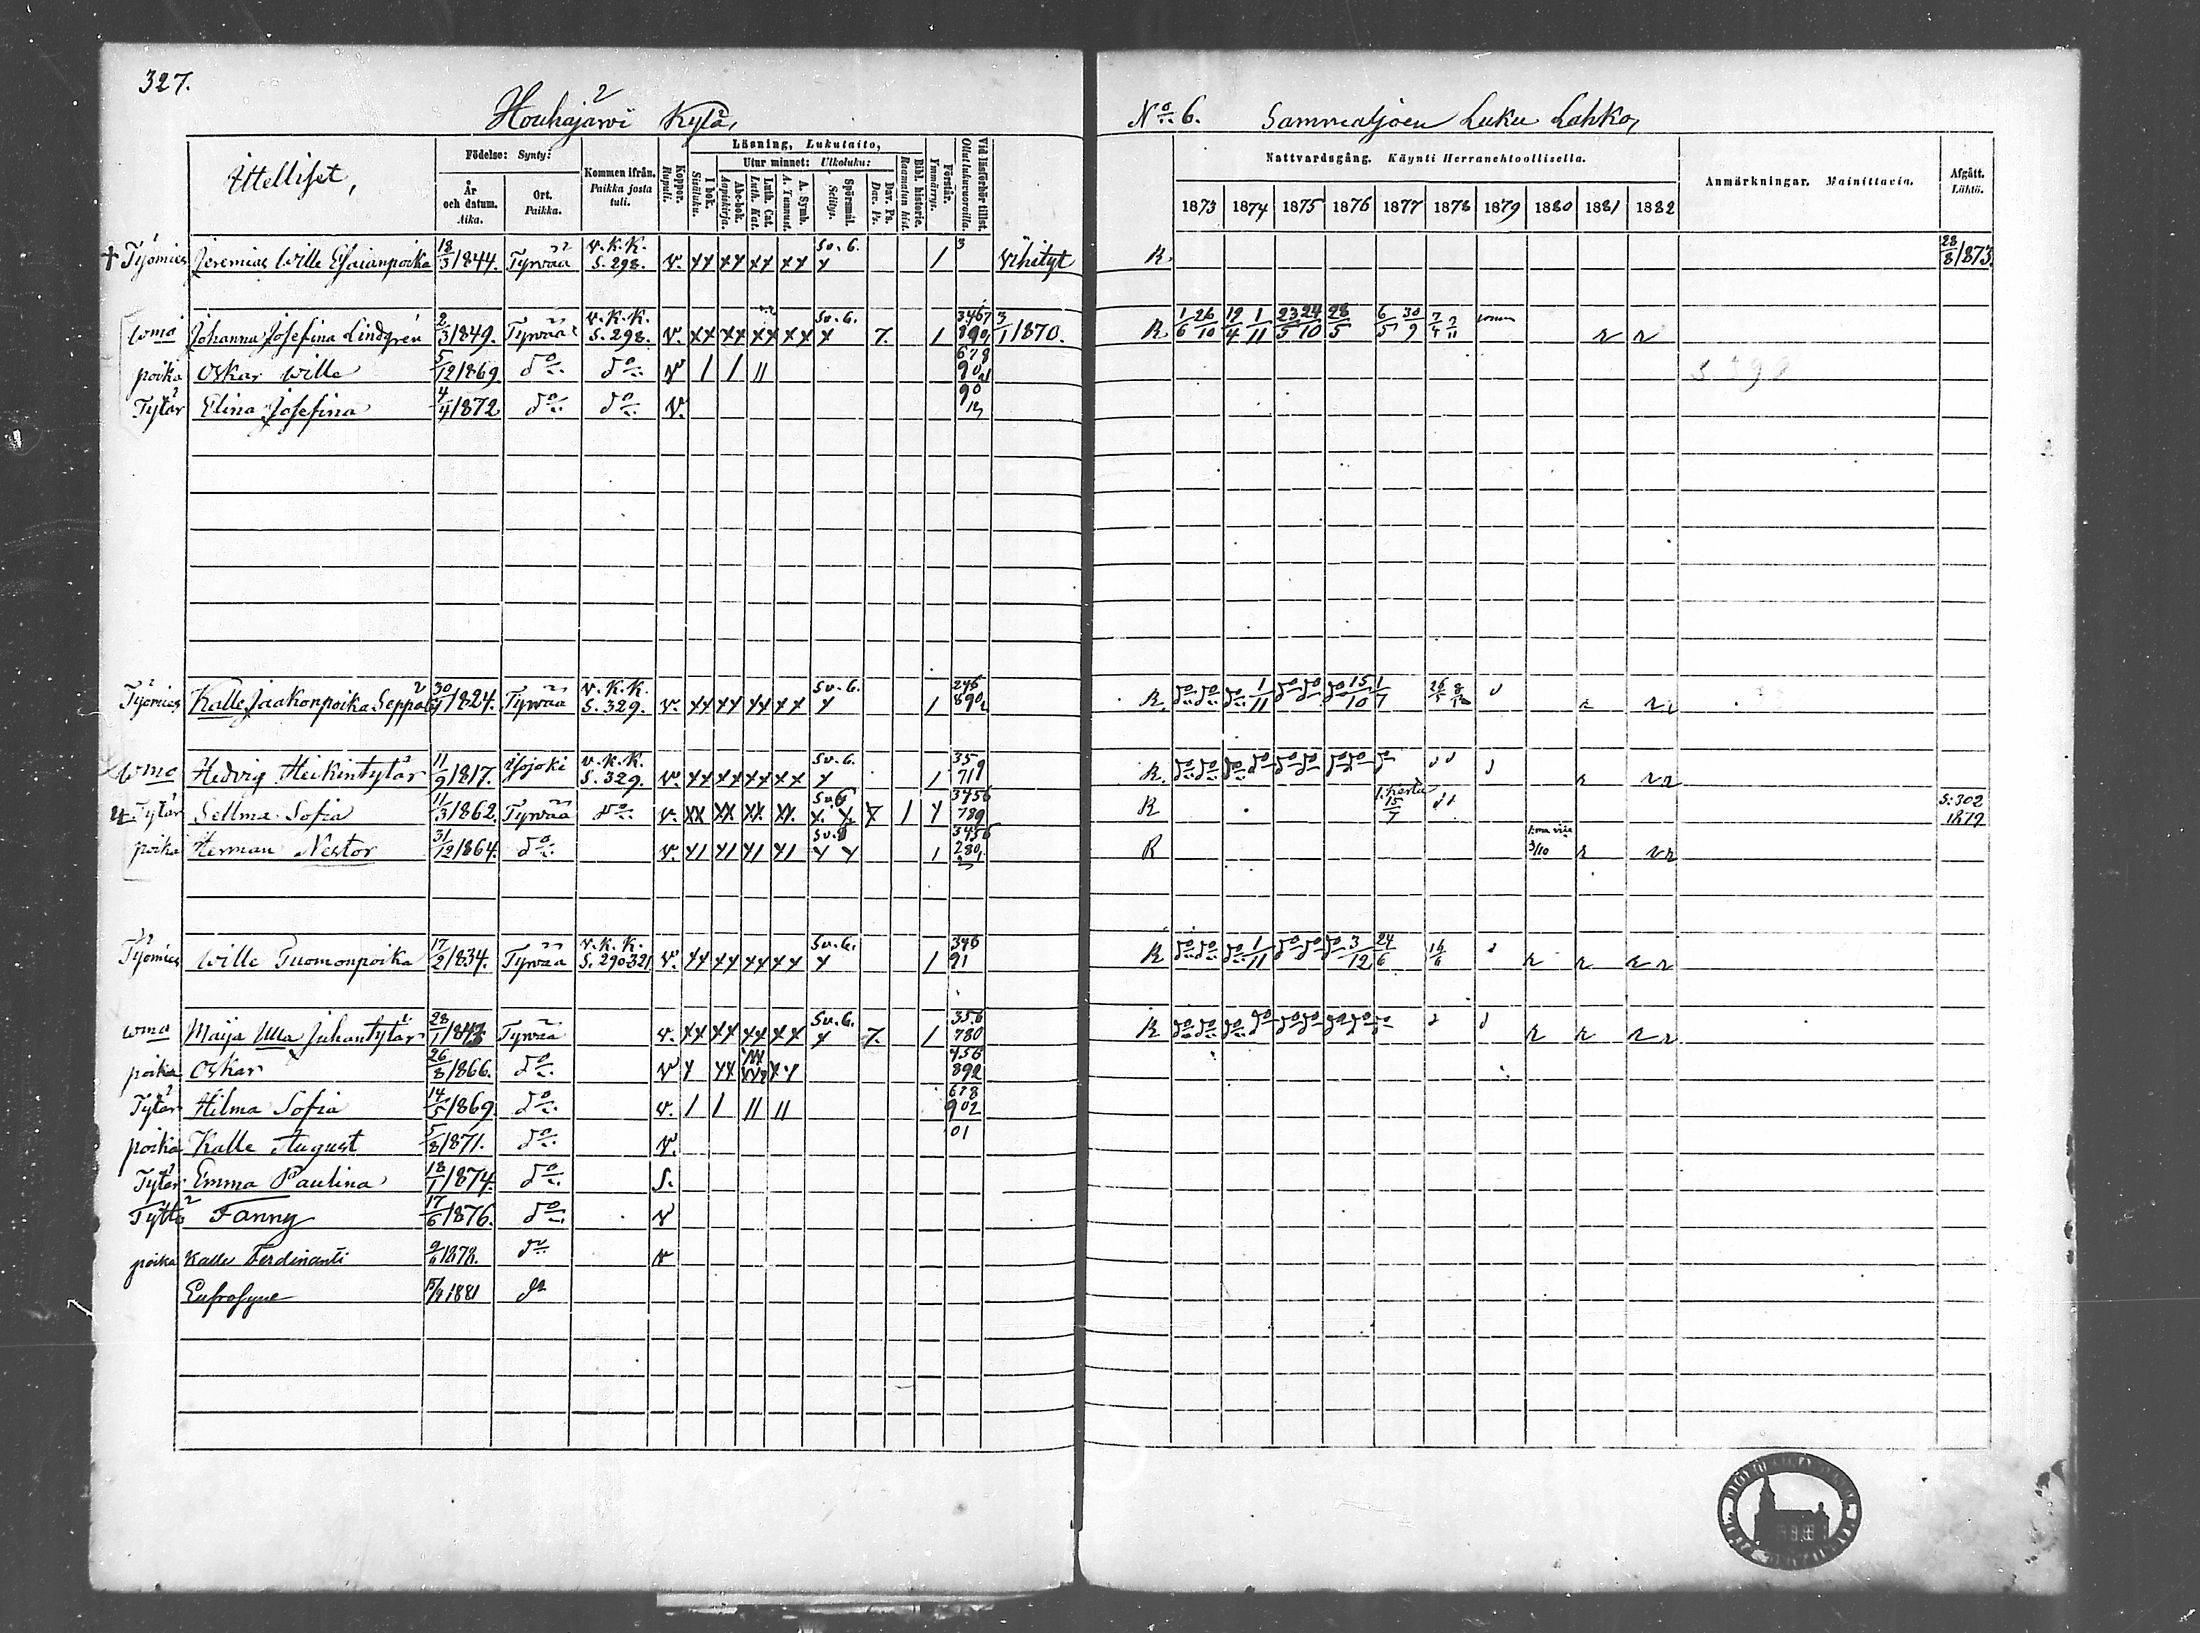 327.
Houhajärwi Kylä,
No 6. Sammaljoen Luku Lahko,
Ittelliset,
Födelse: Synty:
År och datum. Aika.
Ort. Paikka.
Kommen ifrån. Paikka josta tuli.
Koppor. Rupuli.
Läsning, Lukutaito,
I bok. Sisäluku.
Utur minnet: Ulkoluku:
Abc-bok. Aapiskirja.
Luth. Cat. Luth. Kat.
A. Symb. A. Tunnust.
Spörsmål. Selitys.
Dav. Ps. Dav. Ps.
Bibl. historie. Raamatun hist.
Förstår. Ymmärrys.
Vid läsförhör tillst. Ollut lukuvuoroilla.
Nattvardsgång. Käynti Herranehtoollisella.
1873 1874 1875 1876 1877 1878 1879 1880 1881 1882
Anmärkningar. Mainittavia.
Afgått. Lähtö.
† Työmies Jeremias Wille Esaianpoika 18/3 1844. Tyrwää v.k.K. S. 298. v. xx xx xx xx Sv. G. x / 3 Vihityt R. 28/8 1873.
wmo Johanna Josefina Lindgrén 2/3 1849. Tyrwää v.k.K. S. 298. v. xx xx xx xx Sv. G. x 7. / 3467 890, 3/1 1870. R. 1/6 26/10 19/4 1/11 23/5 24/10 28/5 6/5 30/9 r r
poika Oskar Wille 5/12 1869 do do v / / // 678
Tytär Elina Josefina 4/4 1872 do do v. 90
Työmies Kalle Jaakonpoika Seppä 1824. Tyrwää v.k.K. S. 329. v. xx xx xx xx Sv. G. x / 246 890 R. do do do 1/11 do do do 15/10 1/7
wmo Hedvig Heikintytär 11/9 1817. v.k.K. S. 329. v. xx xx xx xx Sv. G. x / 359 711 R. do do do do do do do do do
Tytär Sellma Sofia 11/3 1862. Tyrwää do v. xx xx xx xx Sv. G. x x x / x 3456 789 R 1. kerta 15/7 S: 302 1879
poika Herman Nestor 31/12 1864. do v. x/ x/ x/ x/ x x / 3456 R 3/10 r
Työmies Wille Tuomonpoika 17/2 1834. Tyrwää v.k.K. S. 290 321 v. xx xx xx xx Sv. G. x / 346 91 R do do do 1/11 do do do 3/12 24/6 r r r r
wmo Maija Ulla Juhantytär 28/1 Tyrwää v. xx xx xx xx Sv. G. x 7. / 356 780 R do do do do do do do do do r r r r
poika Oskar 26/8 1866. do v x xx xx 456 892
Tytär Hilma Sofia 14/5 1869. do v. / / // // 678 902
poika Kalle August 5/8 1871. do v. 01
Tytär Emma Paulina 18/1 1874. do S.
Tyttö Fanny 17/6 1876. do v
poika Kalle Ferdinanti 9/6 1878. do v
Eufrosyne 1881 do